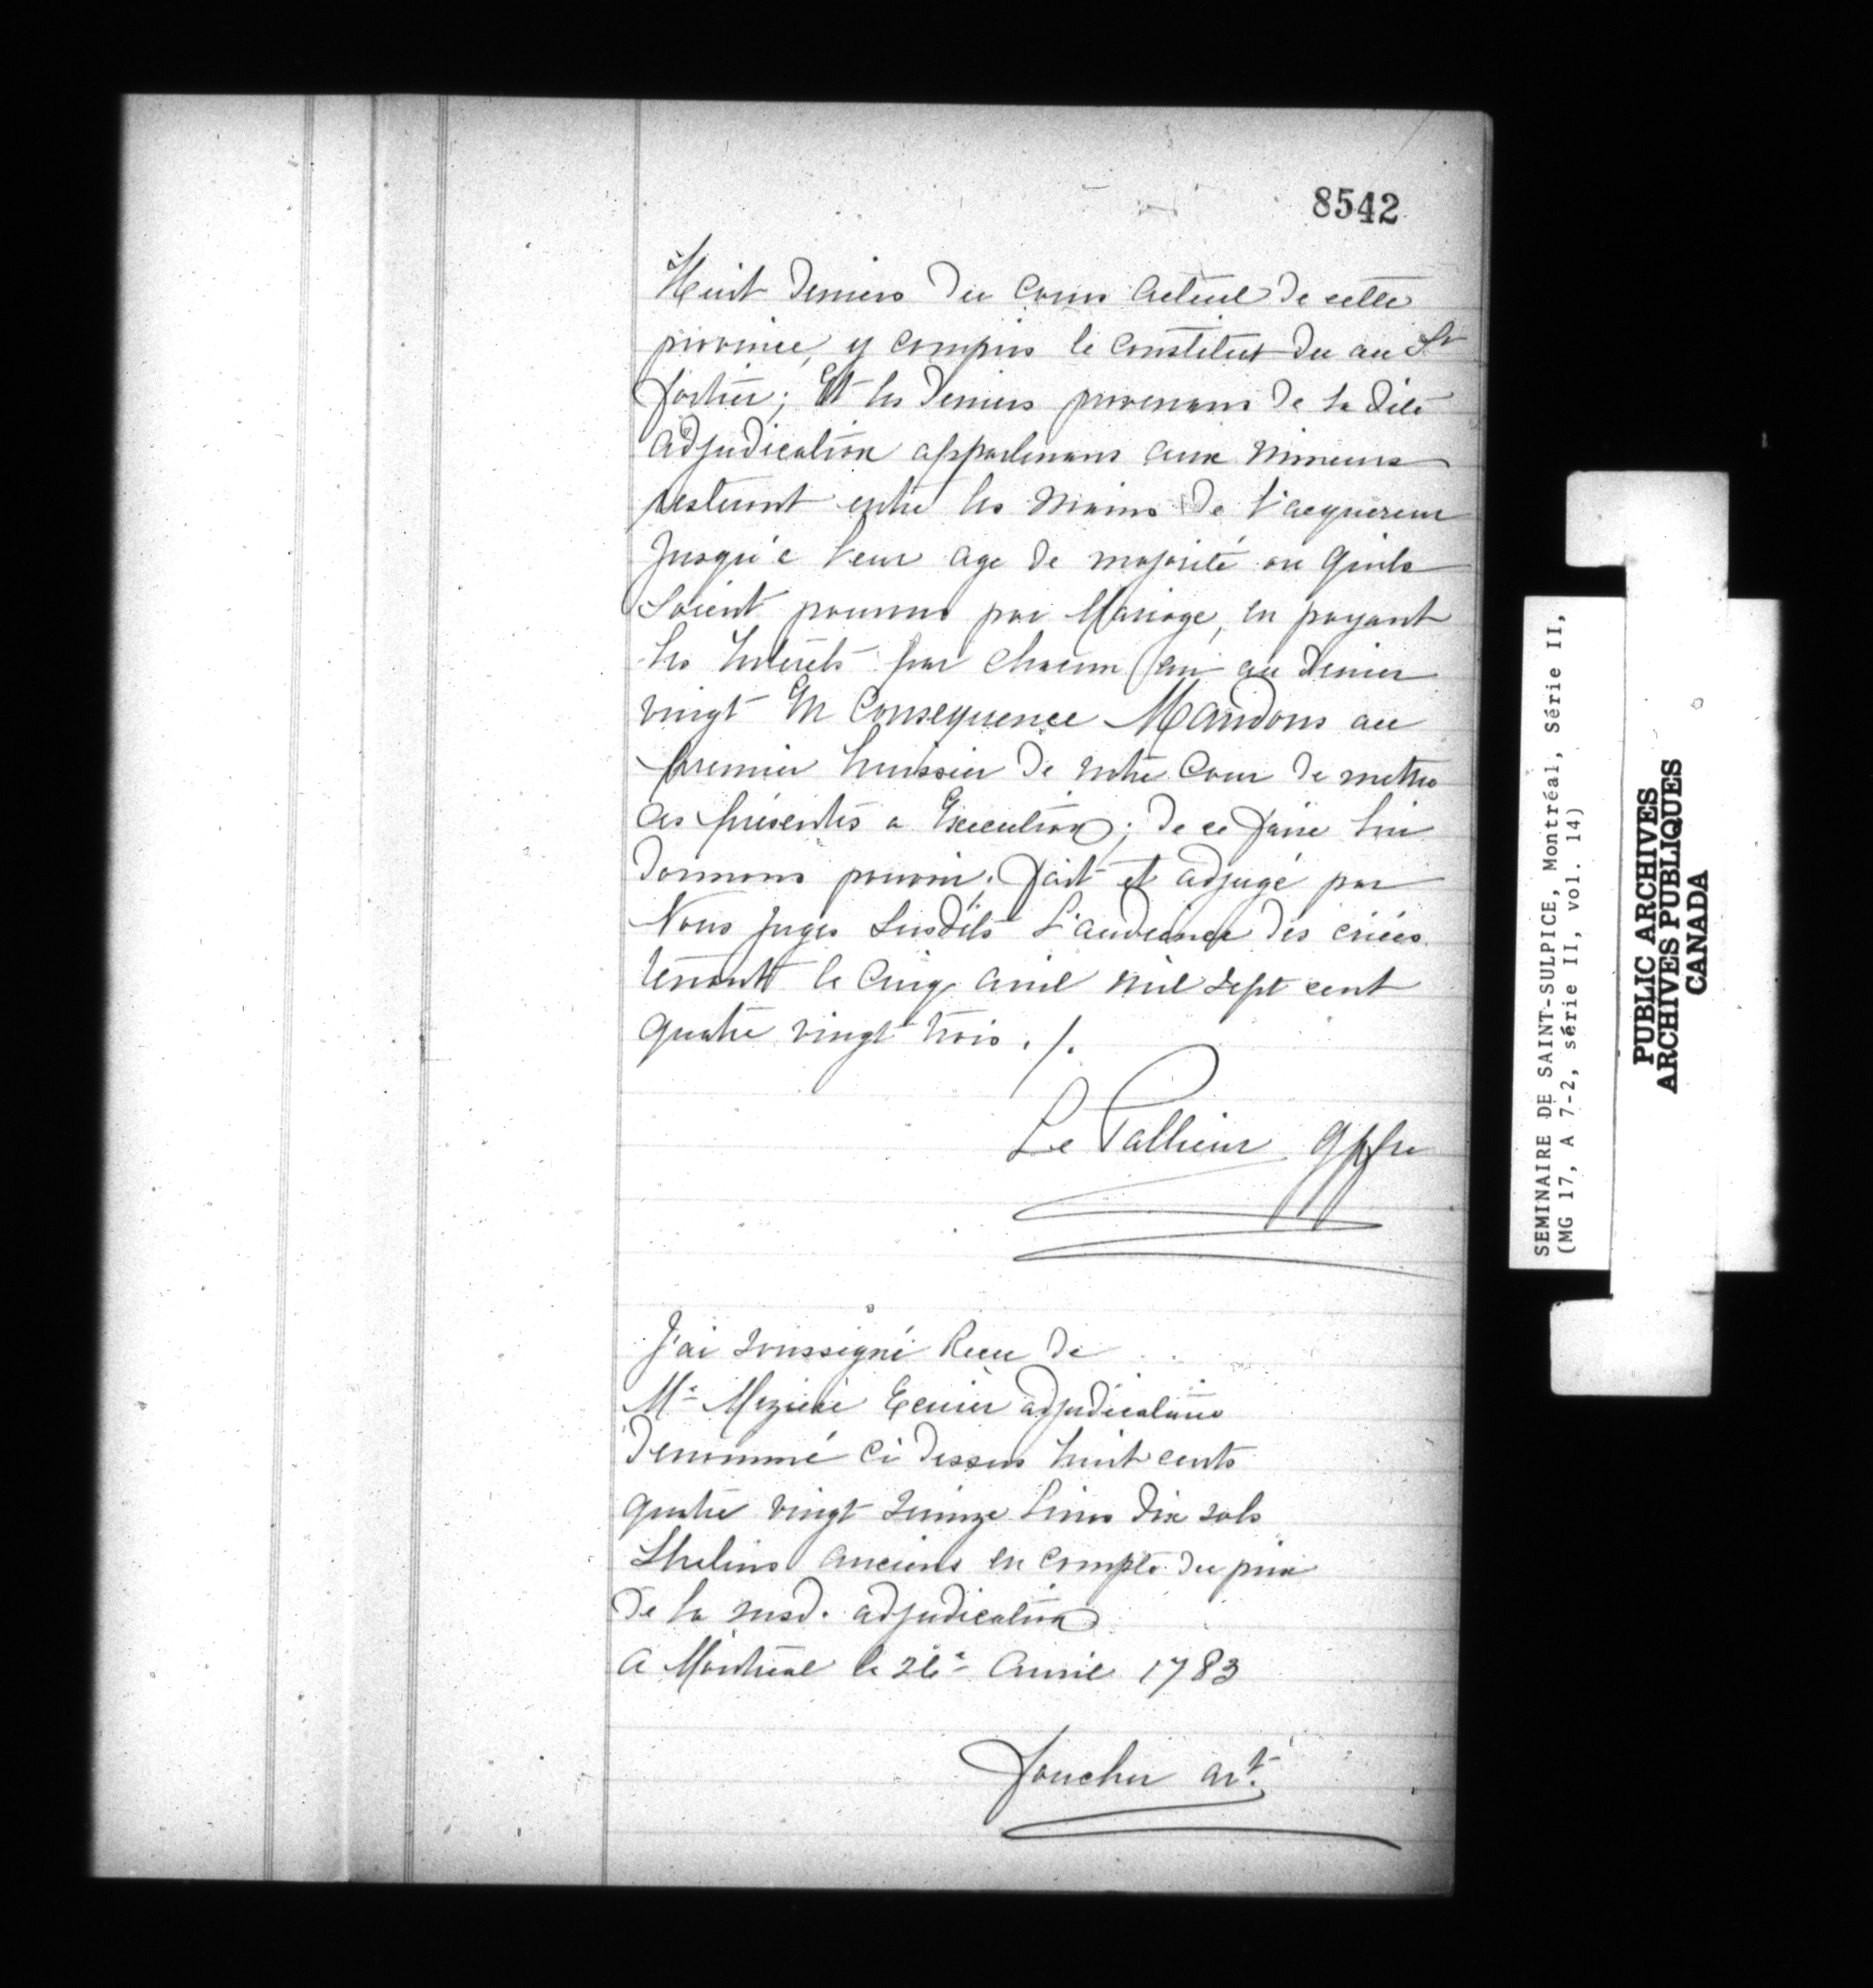 8542
Huit deniers du cours actuel de cette
province, y compris le constitut du au Sr
fortier; Et les deniers provenans de la dite
adjudication appartenans aux Mineurs
resteront entre les mains de l'acquereur
Jusqu'a leur age de majorité ou qu'ils
soient pourvus par Mariage, en payant
les Intérêts par chacun an au denier
vingt En Consequence Mandons au
premier huissier de notre Cour de mettre
ces présentes a Execution; de ce faire lui
donnons pouvoir. fait et adjugé par
Nous Juges susdits L'audience des criées
tenant le Cinq avril mil sept cent
quatre vingt trois ./.
Le Pallieur Gffre
J'ai soussigné Recu de
Mr Meziere Ecuier adjudicataire
denommé ci dessus huit cents
quatre vingt quinze livres dix sols
Shelins anciens en compte du prix
de la susd. adjudication
a Montreal le 26e avril 1783
foucher avt.
SEMINAIRE DE SAINT-SULPICE, Montréal, Série II,
(MG 17, A 7-2, série II, vol. 14)
PUBLIC ARCHIVES
ARCHIVES PUBLIQUES
CANADA